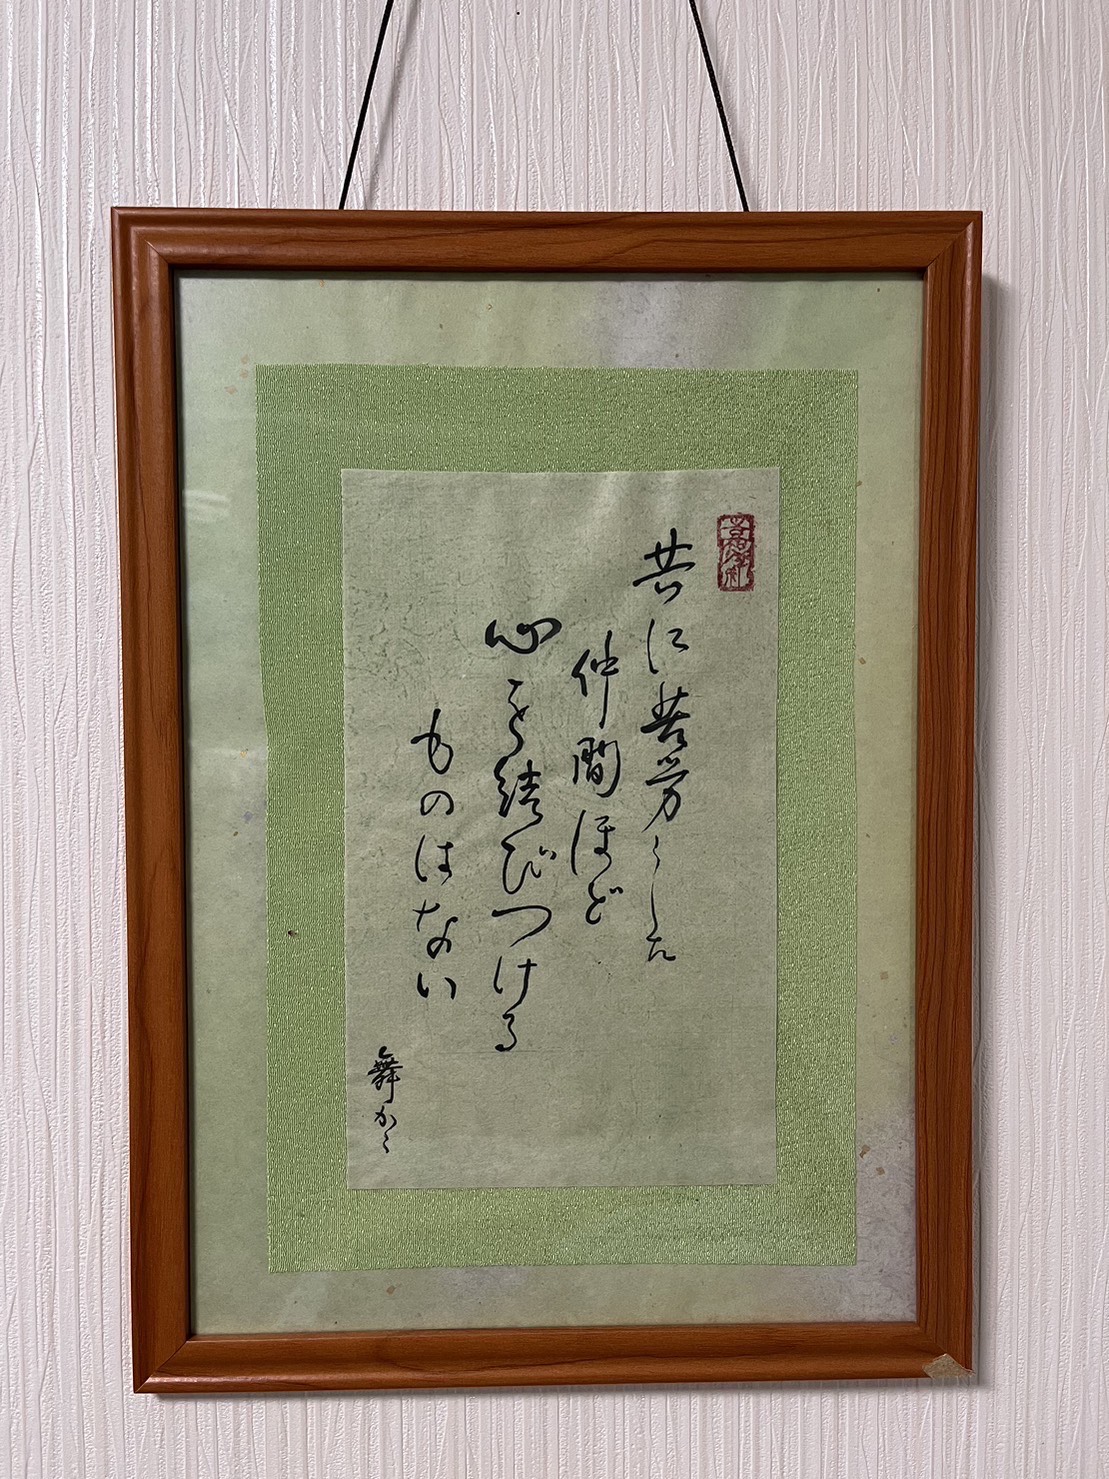 共に苦労した
仲間ほど
心を結びつける
ものはない
舞かこ